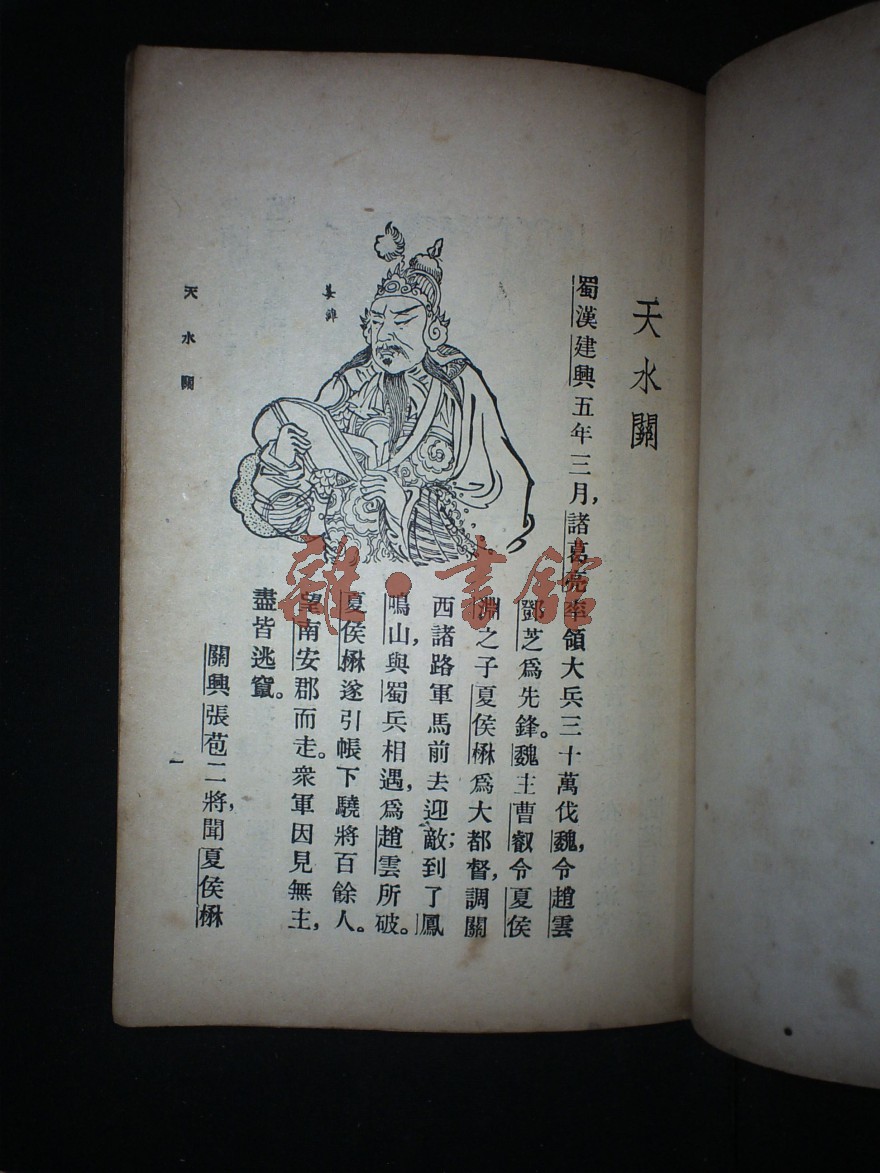 天水關
蜀漢建興五年三月,諸葛亮率領大兵三十萬伐魏,令趙雲
鄧芝爲先鋒。魏主曹叡令夏侯
淵之子夏侯楙爲大都督,調關
西諸路軍馬前去迎敵;到了鳳
鳴山,與蜀兵相遇,爲趙雲所破。
夏侯楙遂引帳下驍將百餘人。
望南安郡而走。衆軍因見無主,
盡皆逃竄。
關興張苞二將,聞夏侯楙
姜維
天水關
一
雜·書館